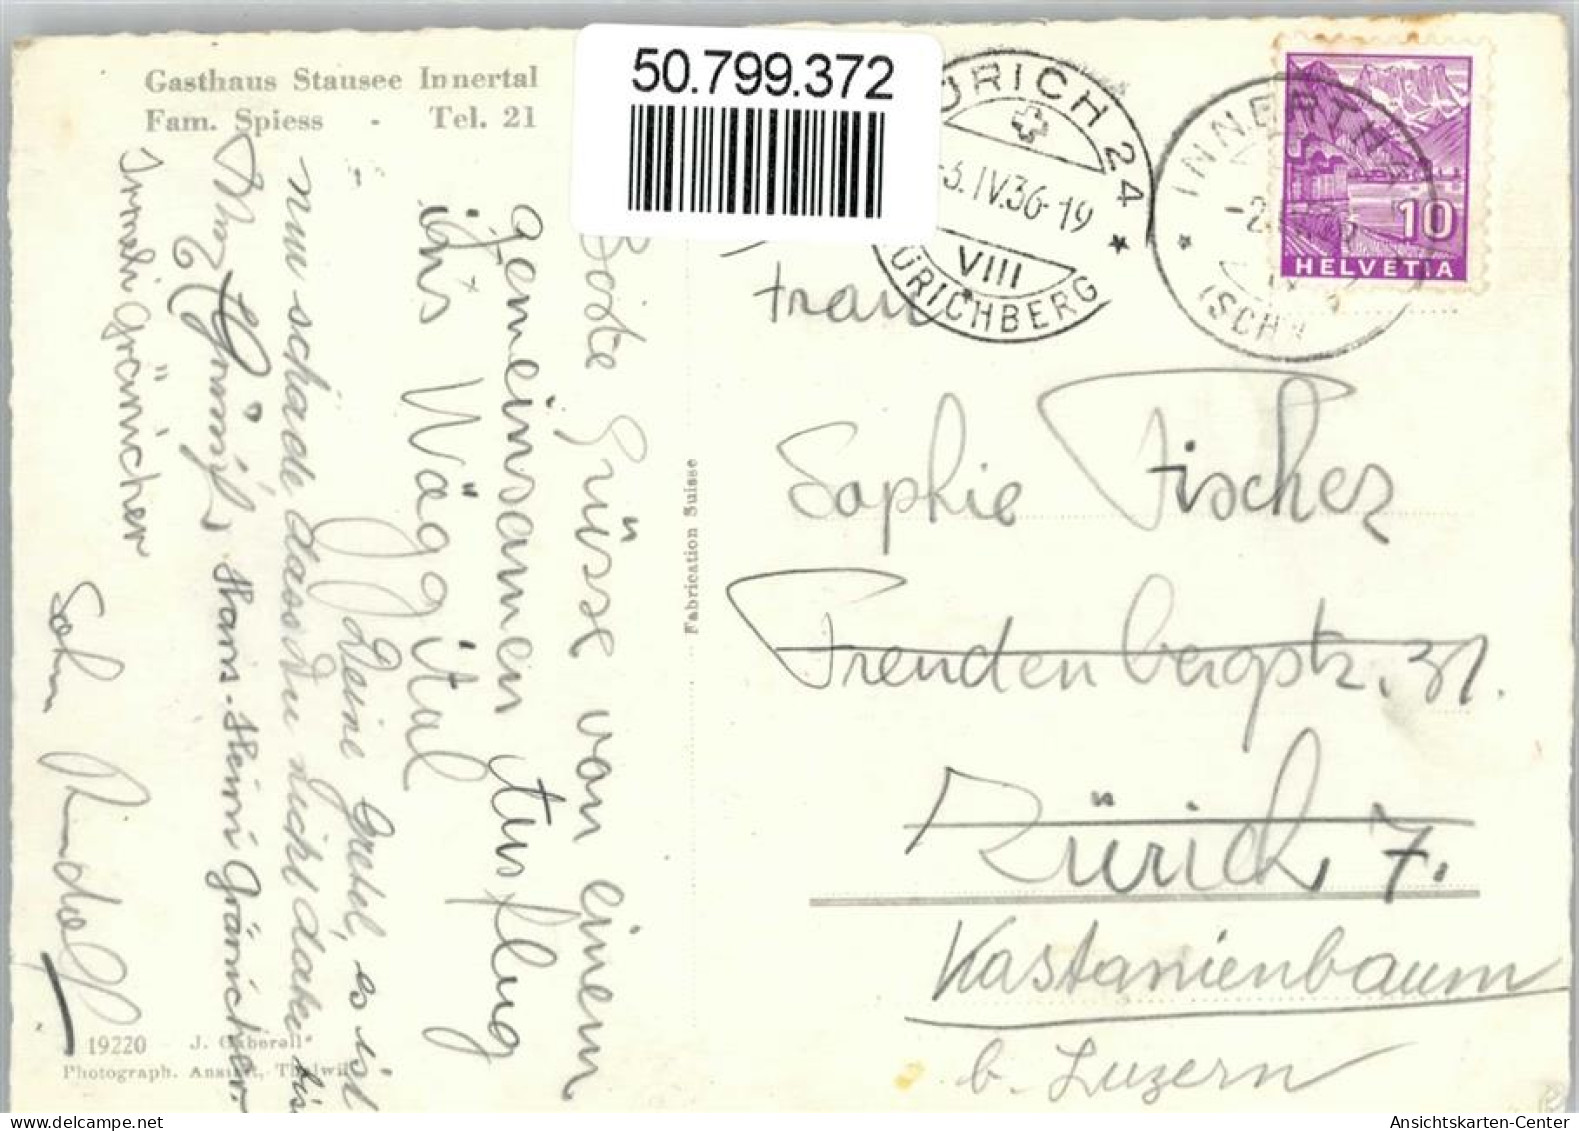 Gasthaus Stausee Innertal
Fam. Spiess - Tel. 21
50.799.372
ÜRICH 24
-3.IV.36-19
VIII
ÜRICHBERG
INNERTHA
(SCH
10
HELVETIA
Frau
Sophie Fischer
Freudenbergstr. 31.
Zürich 7.
Kastanienbaum
b. Luzern
Fabrication Suisse
Beste Grüsse von einem
gemeinsamen Ausflug
ins Wäggital
Deine Gretel, es ist
nur schade dass Du nicht dabei bis
Hans-Heini Gränicher.
Irmeli Gränicher
Sohn Rudolf
19220 J. Gaberell
Photograph. Anstalt, Thalwil
Ansichtskarten-Center